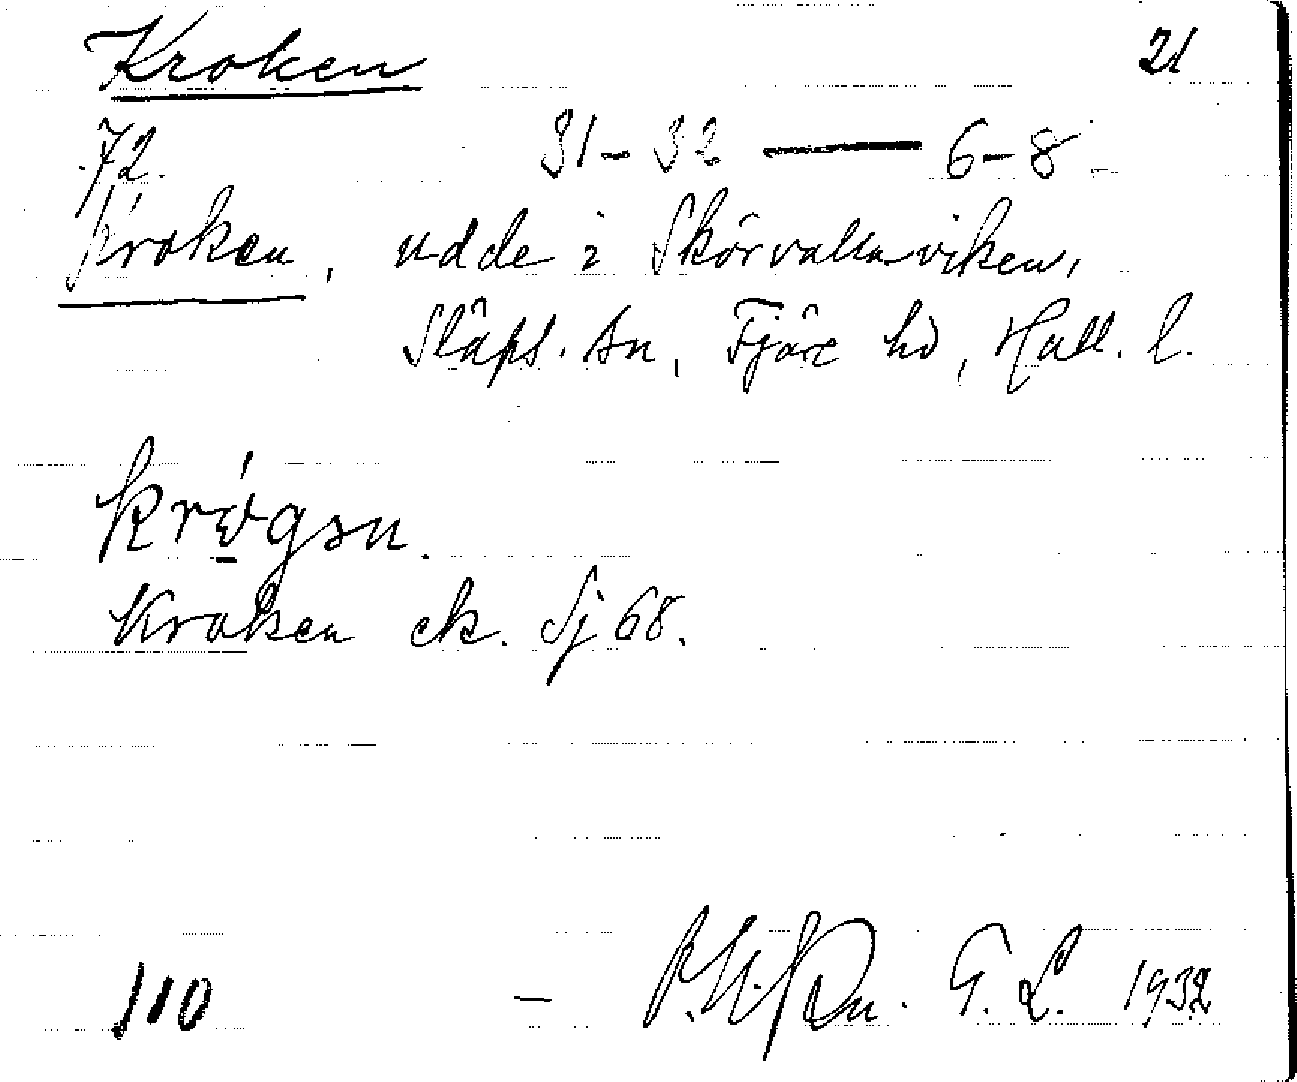 Kroken 21
72. 31-32 — 6-8
Kroken, udde i Skörvallaviken,
Släps. sn, Fjäre hd, Hall. l.
Kroken ek. Sj 68.
110 - G. L. 1932